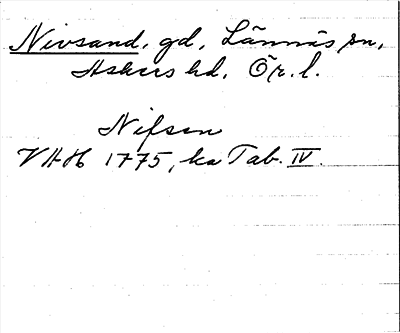 Nivsand, gd, Lännäs sn,
Askers hd, Ör. l.
Nifsan
VHH 1775, ka Tab. IV.